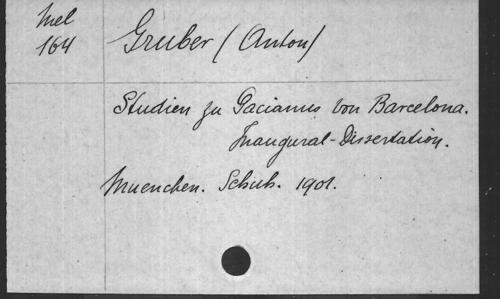 Mel
164
Gruber (Anton)
Studien zu Pacianus von Barcelona.
Inaugural-Dissertation.
Muenchen. Schuh. 1901.